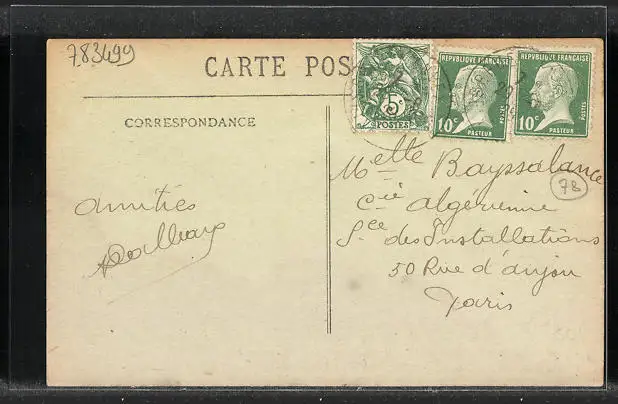 783499
CARTE POS
5c
POSTES
REPUBLIQUE FRANÇAISE
10c
POSTES
PASTEUR
REPUBLIQUE FRANÇAISE
10c
POSTES
PASTEUR
CORRESPONDANCE
amitiés
Melle Bayssalance
78
Cie algérienne
Sce des Installations
50 Rue d'anjou
Paris